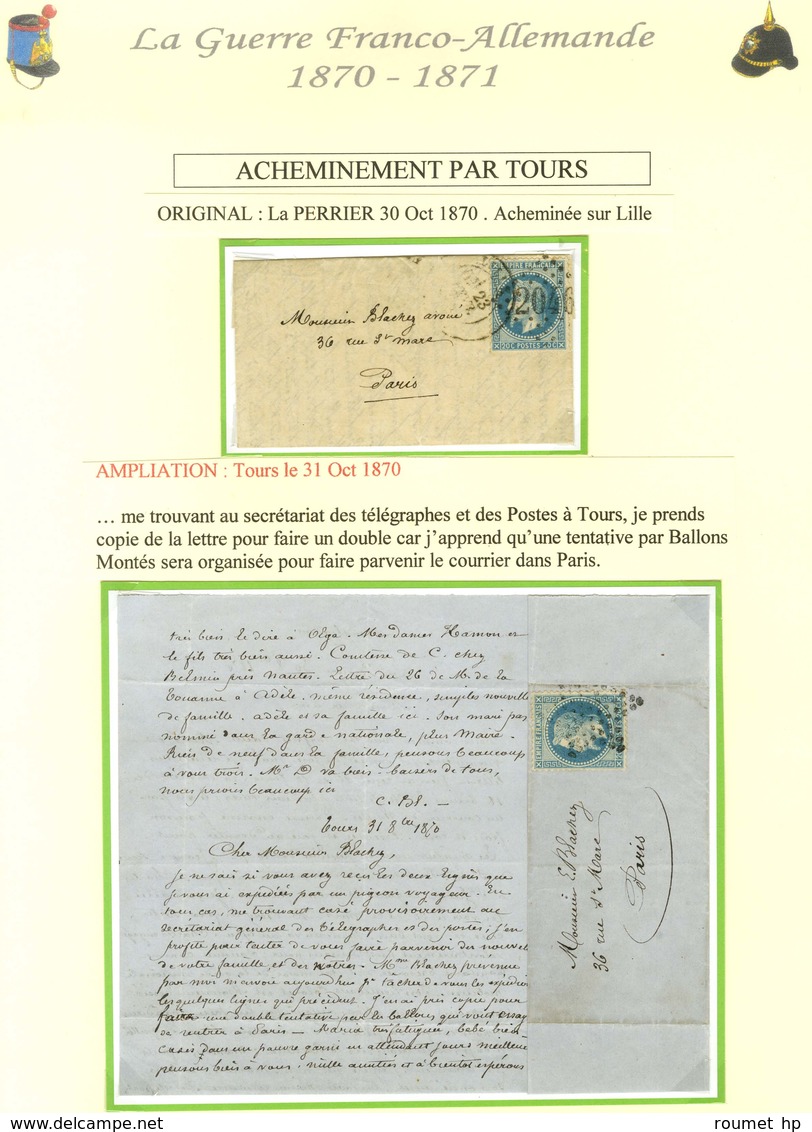 La Guerre Franco-Allemande
1870 - 1871
ACHEMINEMENT PAR TOURS
ORIGINAL : La PERRIER 30 Oct 1870 . Acheminée sur Lille
EMPIRE FRANÇAIS
2046
23
20C POSTES 20C
Monsieur Blachez avoué
36 rue St marc
Paris
AMPLIATION : Tours le 31 Oct 1870
… me trouvant au secrétariat des télégraphes et des Postes à Tours, je prends
copie de la lettre pour faire un double car j'apprend qu'une tentative par Ballons
Montés sera organisée pour faire parvenir le courrier dans Paris.
très bien le dire à Olga. Mesdames Hamon et
le fils très bien aussi. Comtesse de C. chez
Belmin près Nantes. Lettre du 26 de M. de la
Touanne à Adèle. même résidence, simples nouvelles
de famille. Adèle et sa famille ici. Son mari pas
nommé dans la garde nationale, plus Maire.
Rien de neuf dans la famille, pensons beaucoup
à vous trois. Mr D va bien. baisers de tous,
nous prions beaucoup ici
C. Bl. —
Tours 31 8bre 1870
Cher Monsieur Blachez,
Je ne sais si vous avez reçu les deux lignes que
je vous ai expédiées par un pigeon voyageur. En
tous cas, me trouvant casé provisoirement au
secrétariat général des télégraphes et des postes, j'en
profite pour tenter de vous faire parvenir des nouvelles
de votre famille et des nôtres. Mme Blachez prévenue
par moi m'envoie aujourd'hui pr tâcher de vous les expédier
les quelques lignes qui précèdent. J'en ai pris copie pour
faire une double tentative par les ballons qui vont essayer
de rentrer à Paris — Maria très fatiguée, bébé bien
casés dans un pauvre garni en attendant jours meilleurs
pensons bien à vous, mille amitiés et à bientôt espérons
EMPIRE FRANÇAIS
Monsieur E. Blachez
36 rue St Marc
Paris